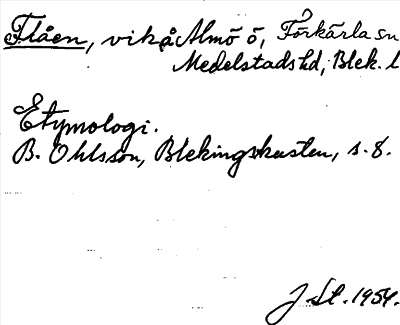 Flåen, vik å Almö ö, Förkärla sn
Medelstads hd, Blek. l
Etymologi.
B. Ohlsson, Blekingskusten, s. 8.
J St. 1954.